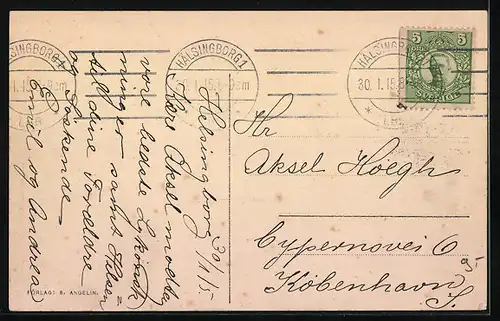 HÄLSINGBORG 1
30.1.15.8
HÄLSINGBORG 1
HÄLSINGBORG
30.1.15.8
5 5
Helsingborg 30/1 15-
Kjære Aksel modtag
vore bedste Lykønsk=
ninger samt Hilsen
til dine Forældre
og Søskende
Emil og Andrea
Hr
Aksel Høegh
Cypernsvei 6
København
S.
FÖRLAG: B. ANGELIN.